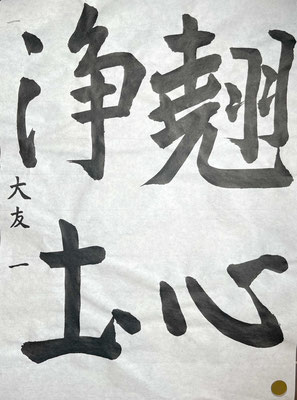 翹心
浄土
大友 一